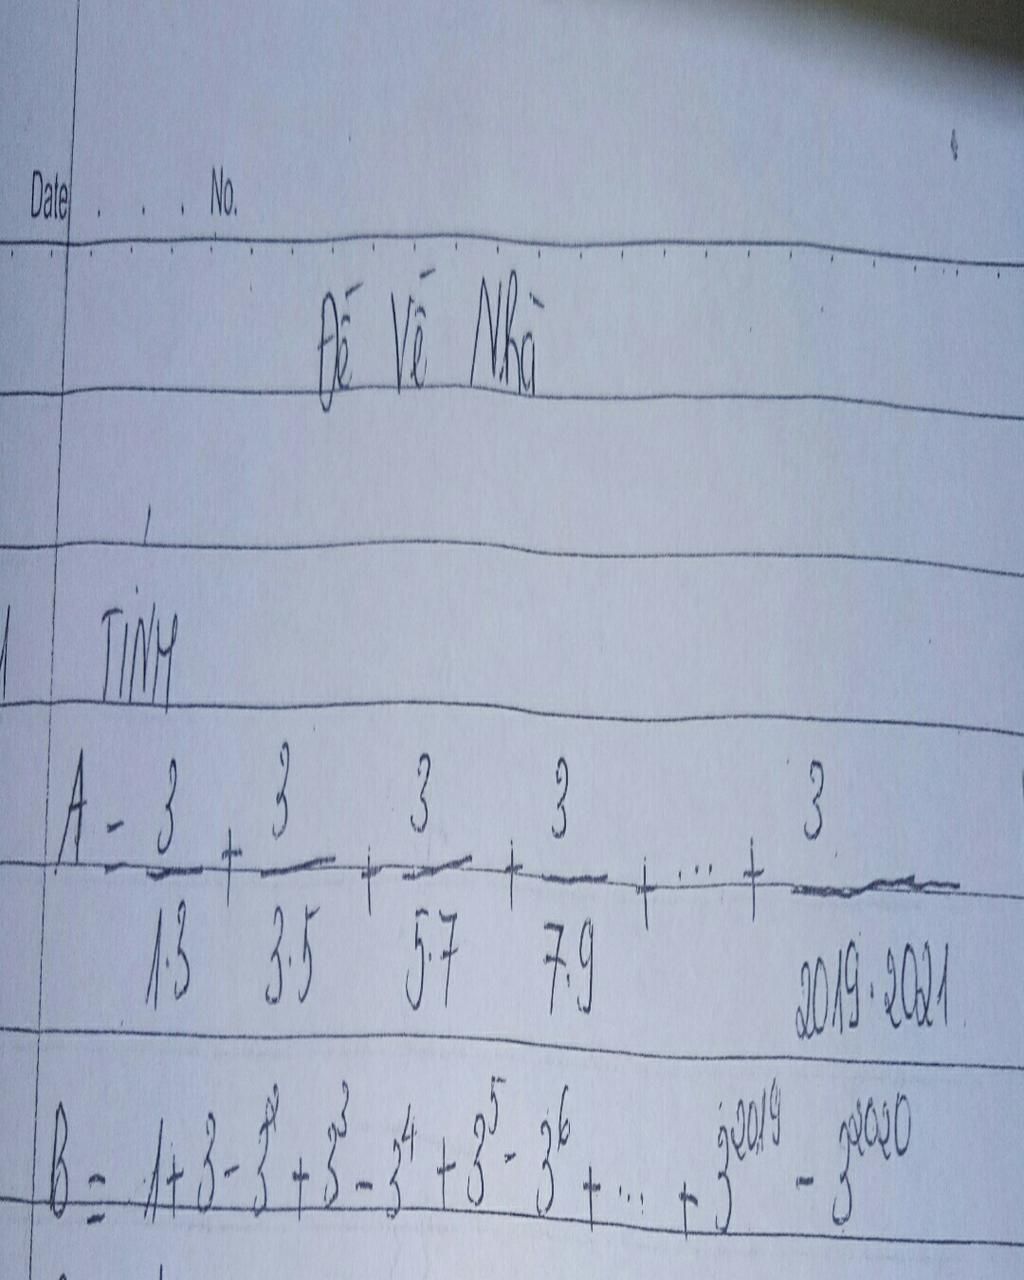 Date . . . No.
Đề Về Nhà
1 TÍNH
A = 3/1.3 + 3/3.5 + 3/5.7 + 3/7.9 + ... + 3/2019.2021
B = 1+3-3²+3³-3⁴+3⁵-3⁶+...+3²⁰¹⁹-3²⁰²⁰